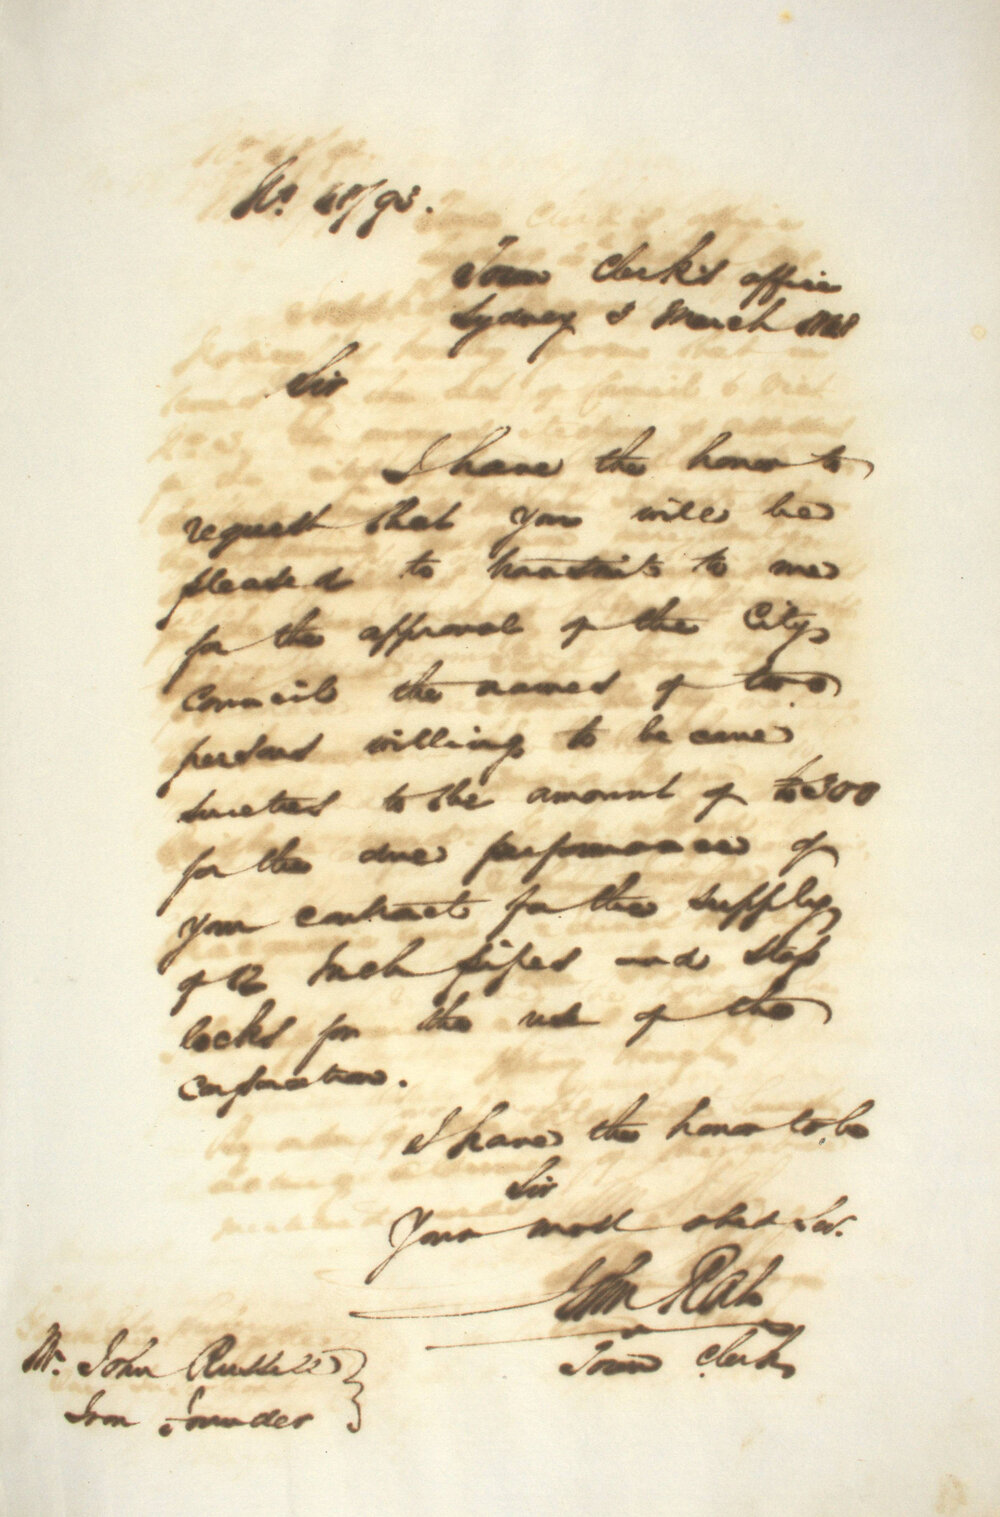 No. 48/93.
Town Clerk's office
Sydney 3 March 1848
Sir
I have the honor to
request that you will be
pleased to transmit to me
for the approval of the City
Council the names of two
persons willing to become
sureties to the amount of £300
for the due performance of
your contract for the supply
of 12 Inch pipes and stop
cocks for the use of the
Corporation.
I have the honor to be
Sir
Your most obed Ser.
John Rae
Town Clerk
Mr. John Russell
Iron Founder